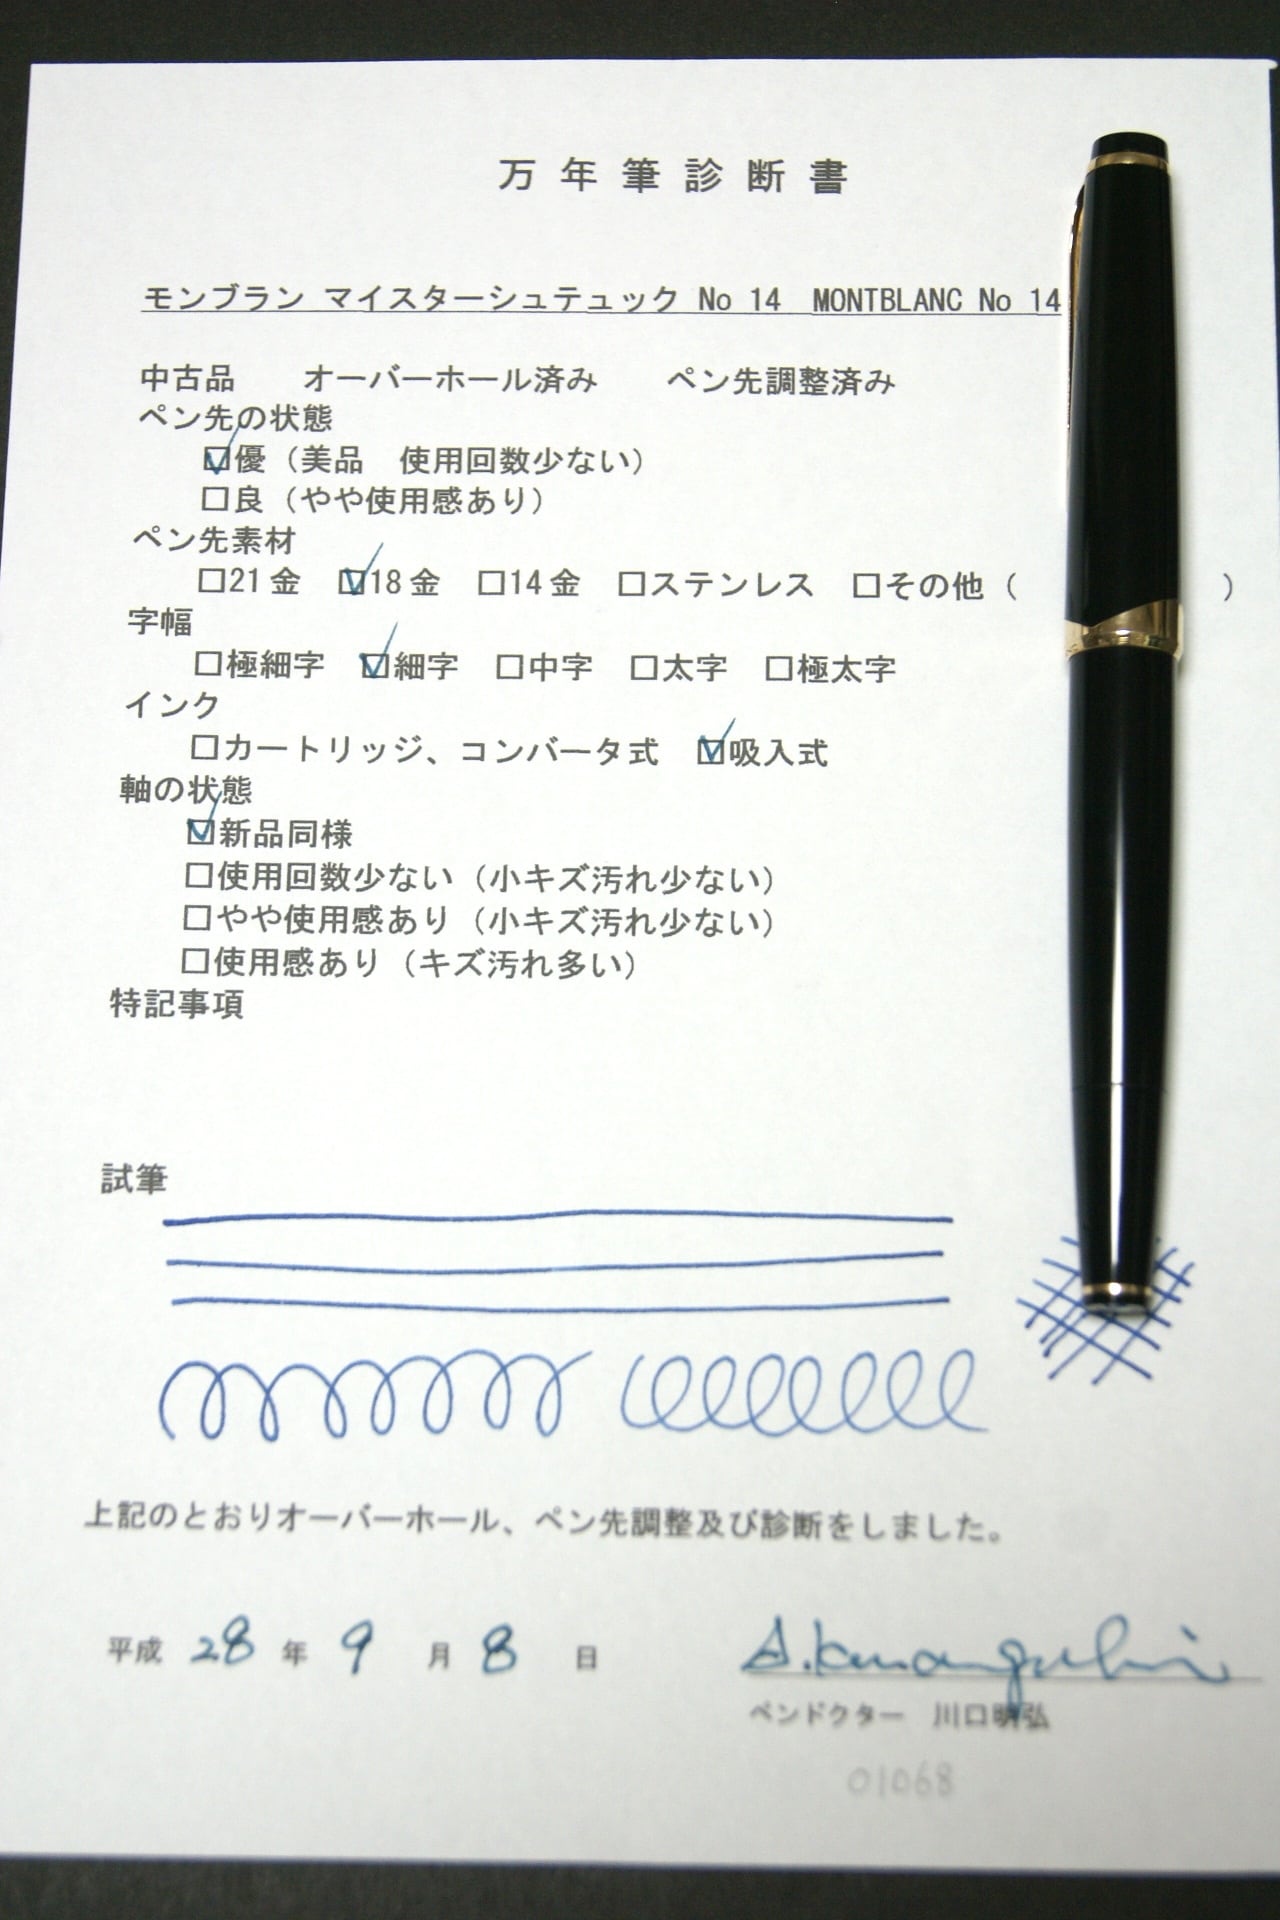 万年筆診断書
モンブラン マイスターシュテュック No 14 MONTBLANC No 14
中古品 オーバーホール済み ペン先調整済み
ペン先の状態
☑優（美品 使用回数少ない）
□良（やや使用感あり）
ペン先素材
□21金 ☑18金 □14金 □ステンレス □その他（ ）
字幅
□極細字 ☑細字 □中字 □太字 □極太字
インク
□カートリッジ、コンバータ式 ☑吸入式
軸の状態
☑新品同様
□使用回数少ない（小キズ汚れ少ない）
□やや使用感あり（小キズ汚れ少ない）
□使用感あり（キズ汚れ多い）
特記事項
試筆
上記のとおりオーバーホール、ペン先調整及び診断をしました。
平成 28 年 9 月 8 日 A.Kawaguchi
ペンドクター 川口明弘
01068